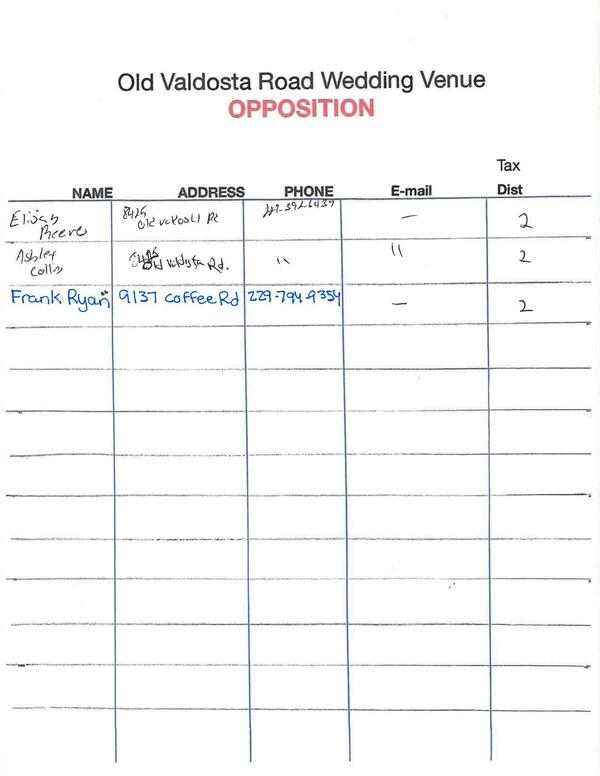 Old Valdosta Road Wedding Venue
OPPOSITION
Tax
NAME ADDRESS PHONE E-mail Dist
Elijah 8425
Old Rd — 2
Ashley
Collis Old Valdosta Rd. " " 2
Frank Ryan 9137 Coffee Rd 229-794-9354 — 2